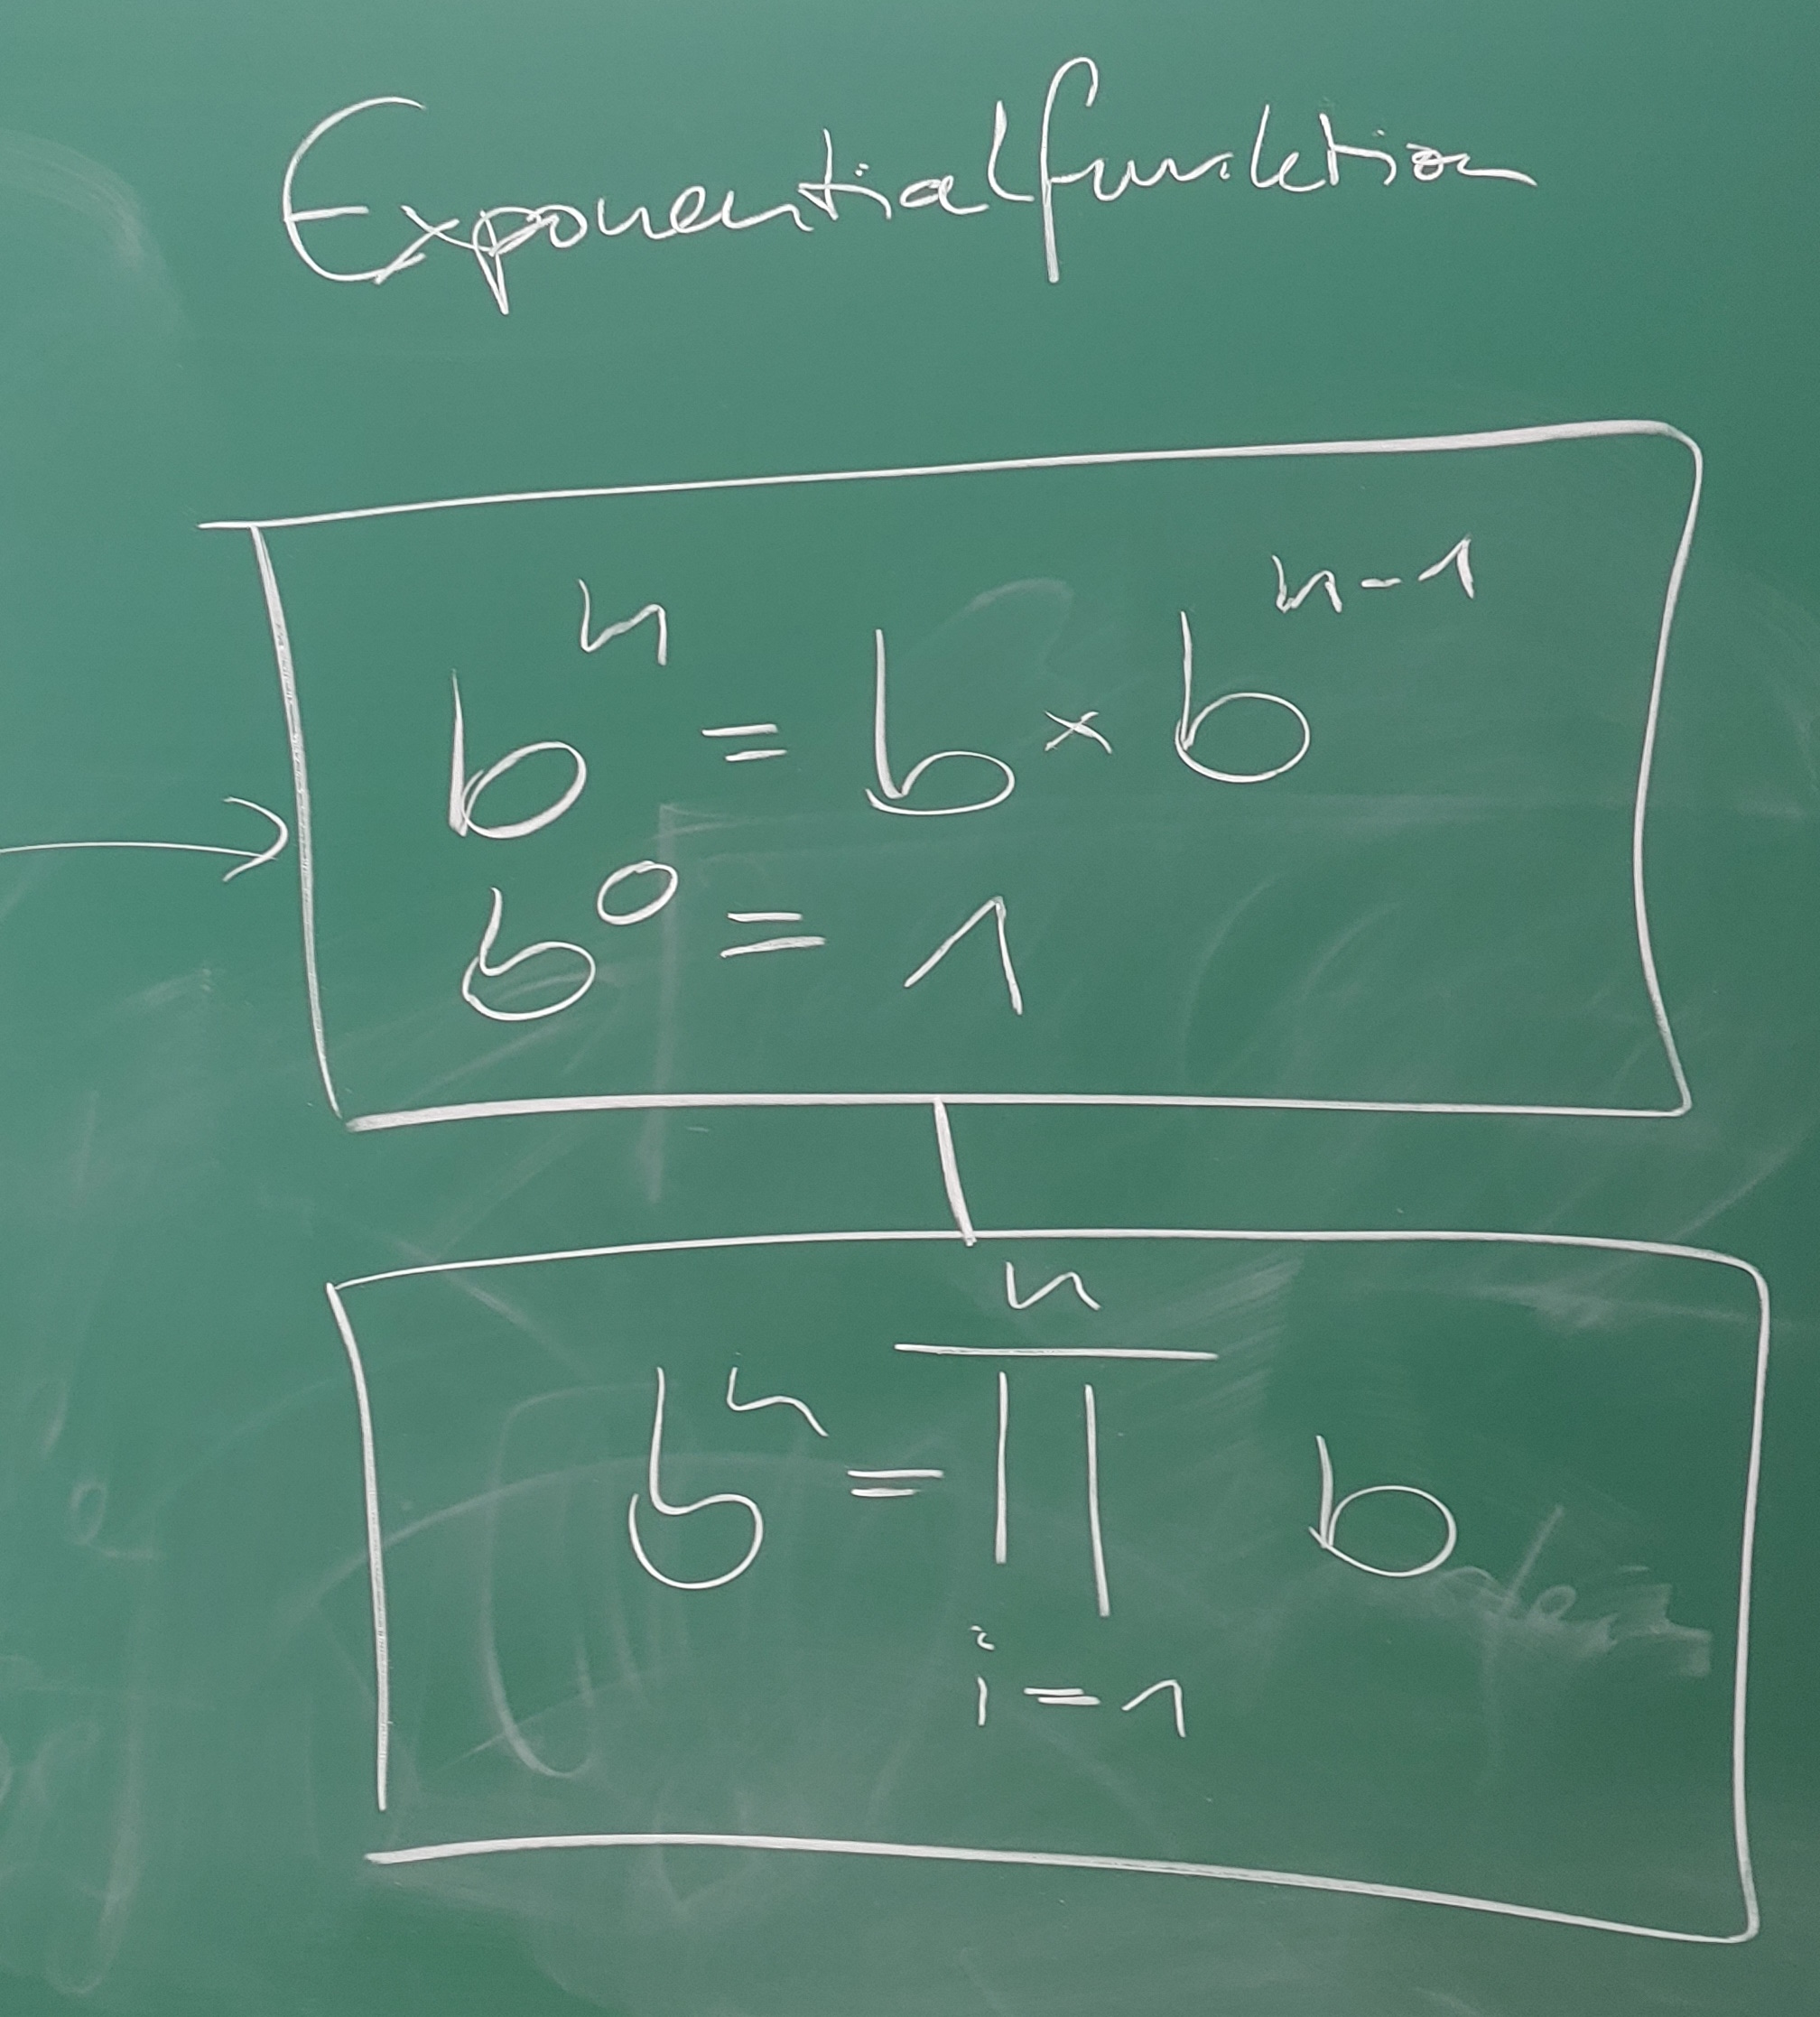 Exponentialfunktion
bⁿ = b × bⁿ⁻¹
b⁰ = 1
n
bⁿ = ∏ b
i = 1